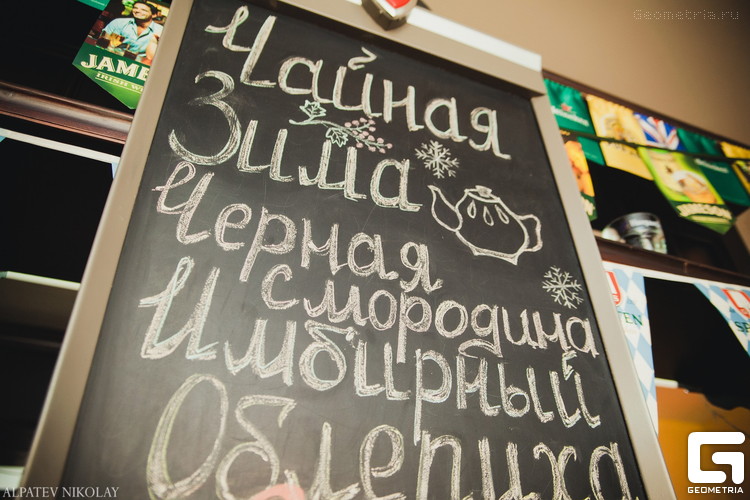 Geometria.ru
JAMES
IRISH W
Чайная
Зима
Черная
смородина
Имбирный
Облепиха
ALPATEV NIKOLAY
G
GEOMETRIA